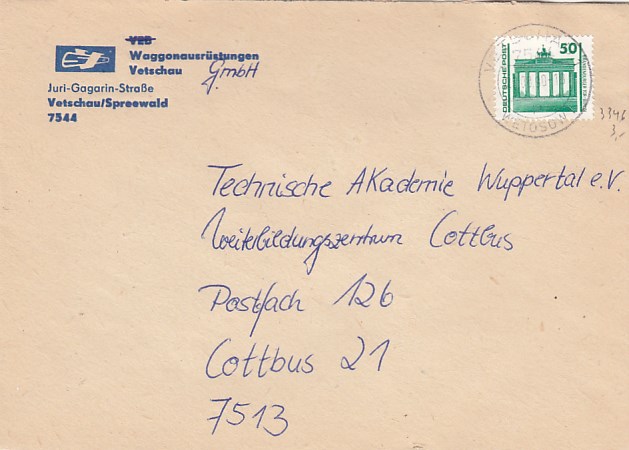 VEB
Waggonausrüstungen
Vetschau GmbH
Juri-Gagarin-Straße
Vetschau/Spreewald
7544
DEUTSCHE POST
50
3346
3,-
Technische Akademie Wuppertal e.V.
Weiterbildungszentrum Cottbus
Postfach 126
Cottbus 21
7513